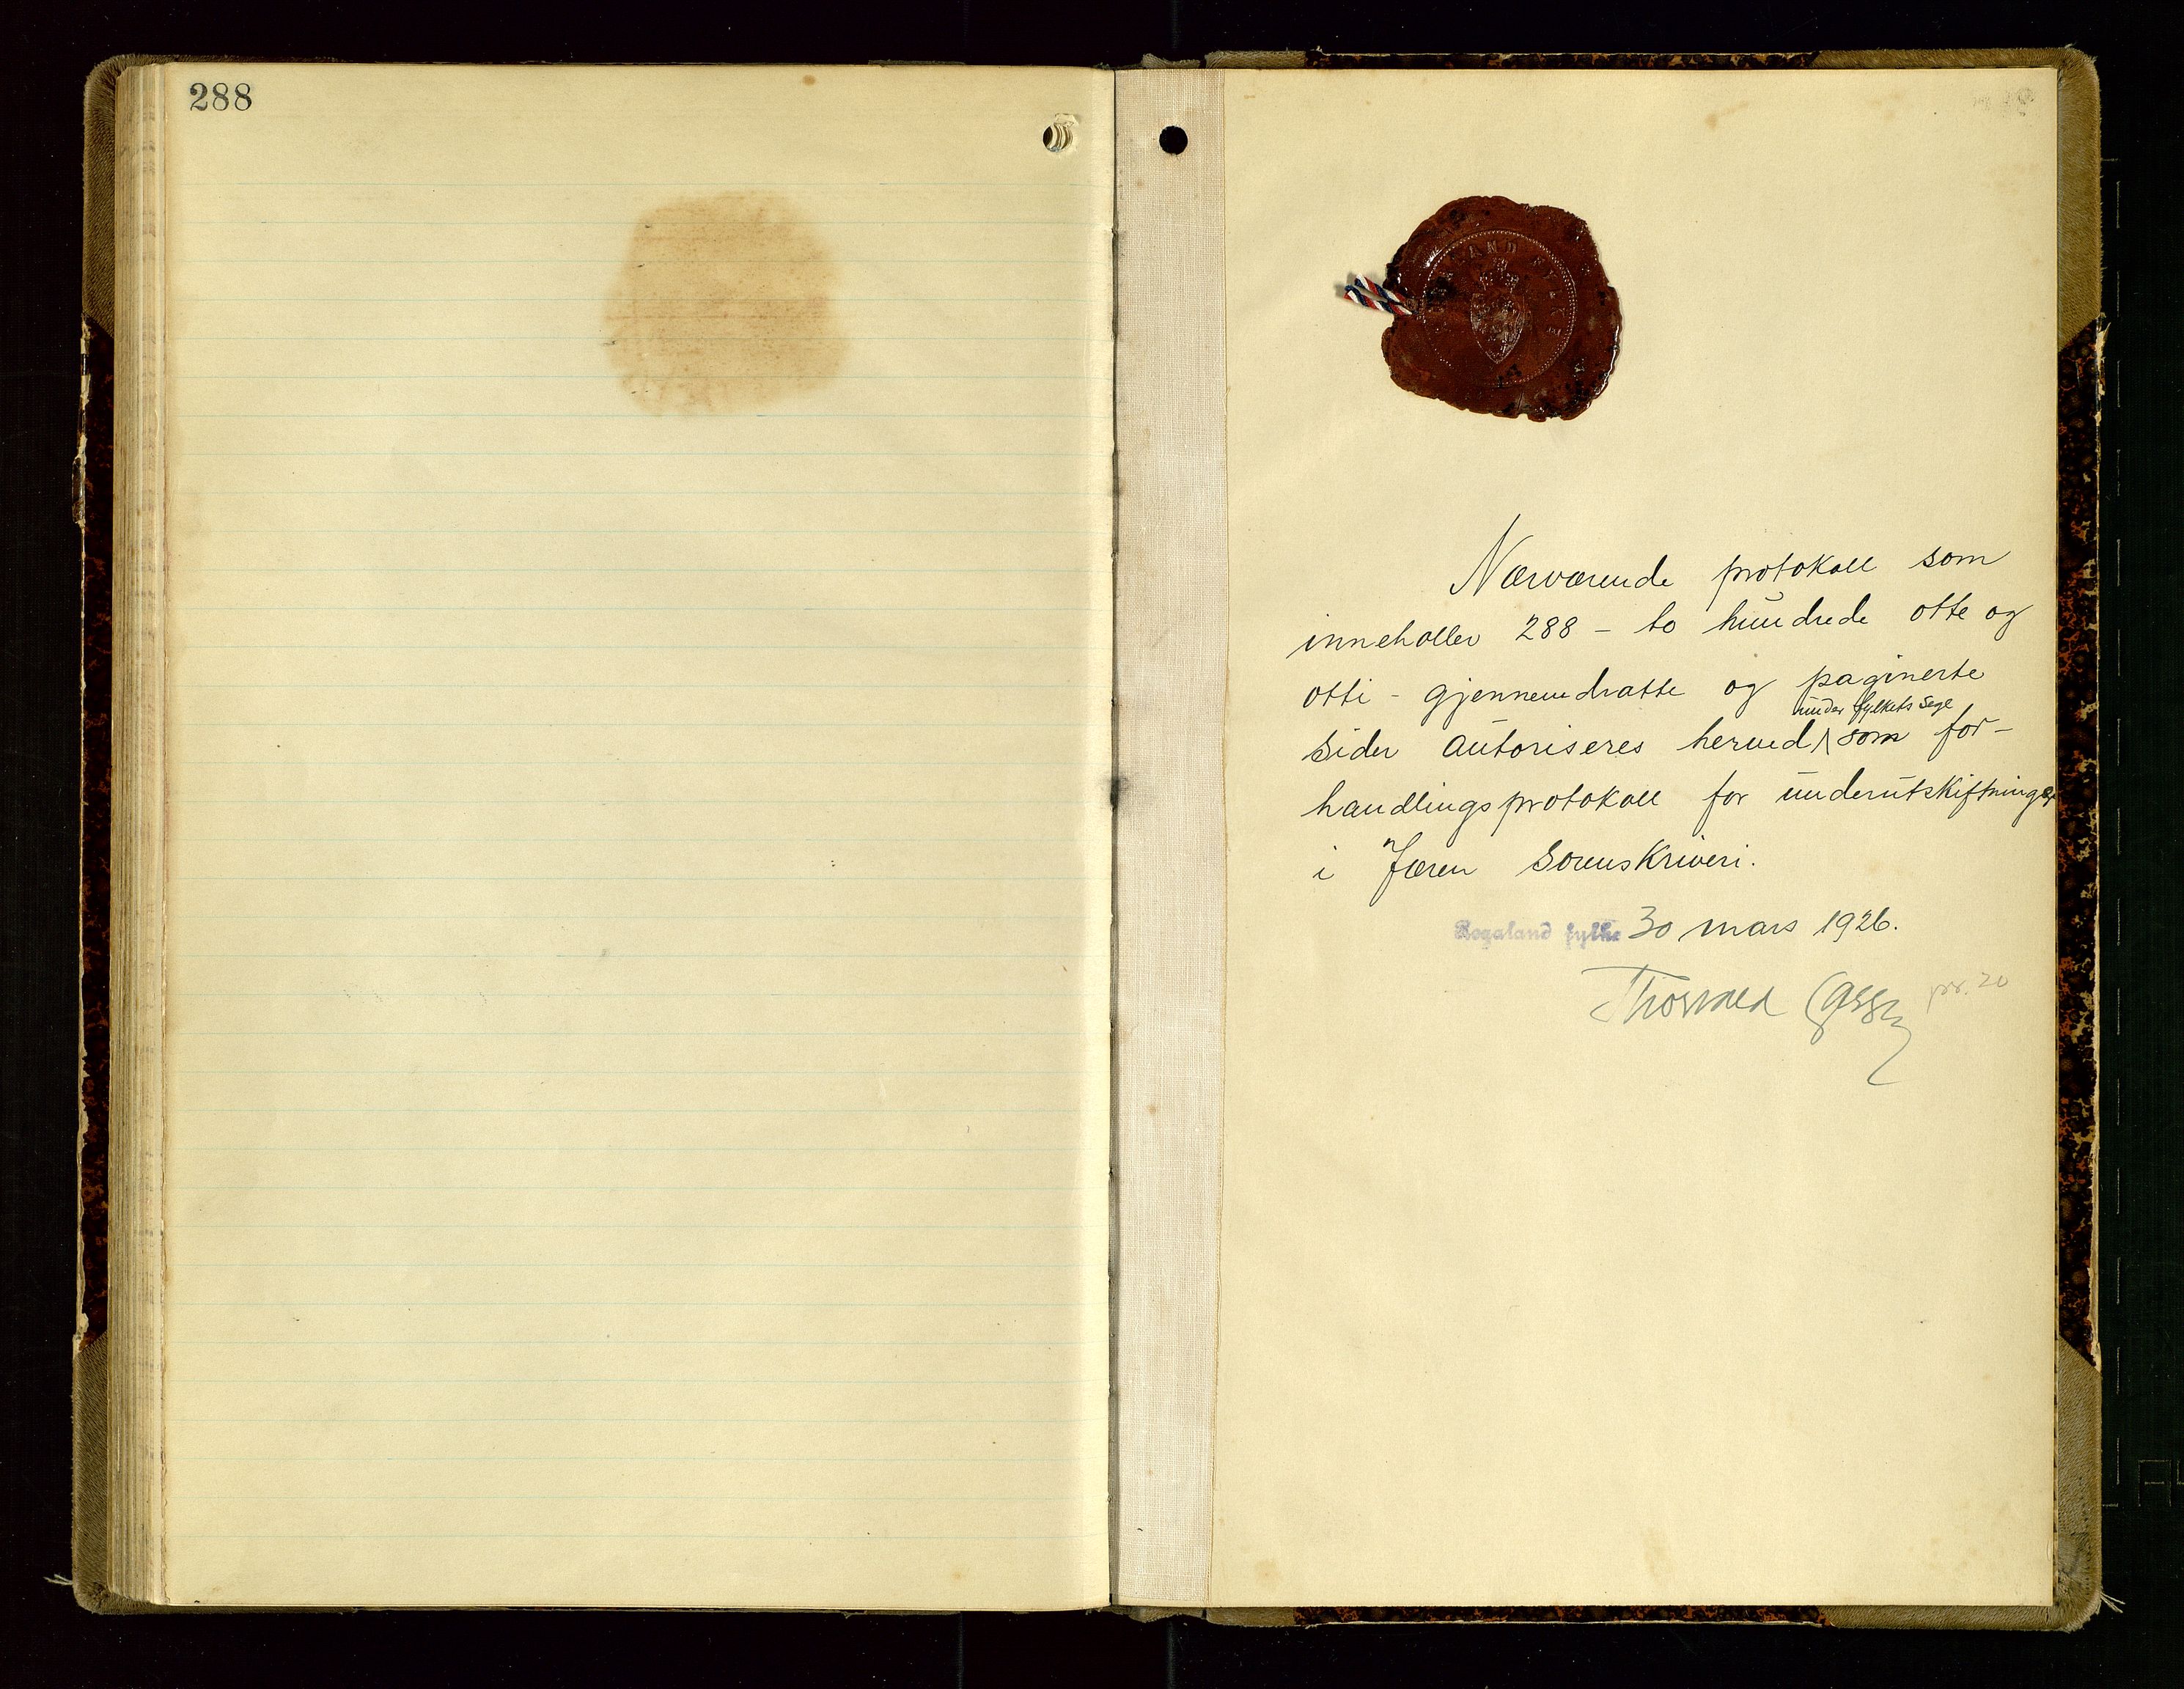 288
ROGALAND FYLKE
Nærværende protokoll som
inneholler 288 - to hundrede otte og
otti - gjennemdratte og paginerte
under fylkets segl
sider autoriseres herved som for-
handlingsprotokoll for underutskiftninger
i Jæren sorenskriveri.
Rogaland fylke 30 mars 1926.
Thorvald